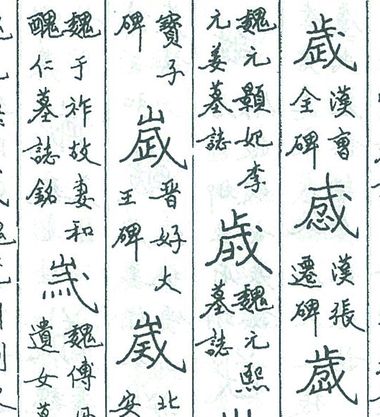 歳漢曹全碑 漢張遷碑歳
魏元顥妃李元姜墓誌歳魏元熙墓誌
寶子碑嵗晉好大王碑嵗北安
魏于祚故妻和醜仁墓誌銘 魏傅 遺女